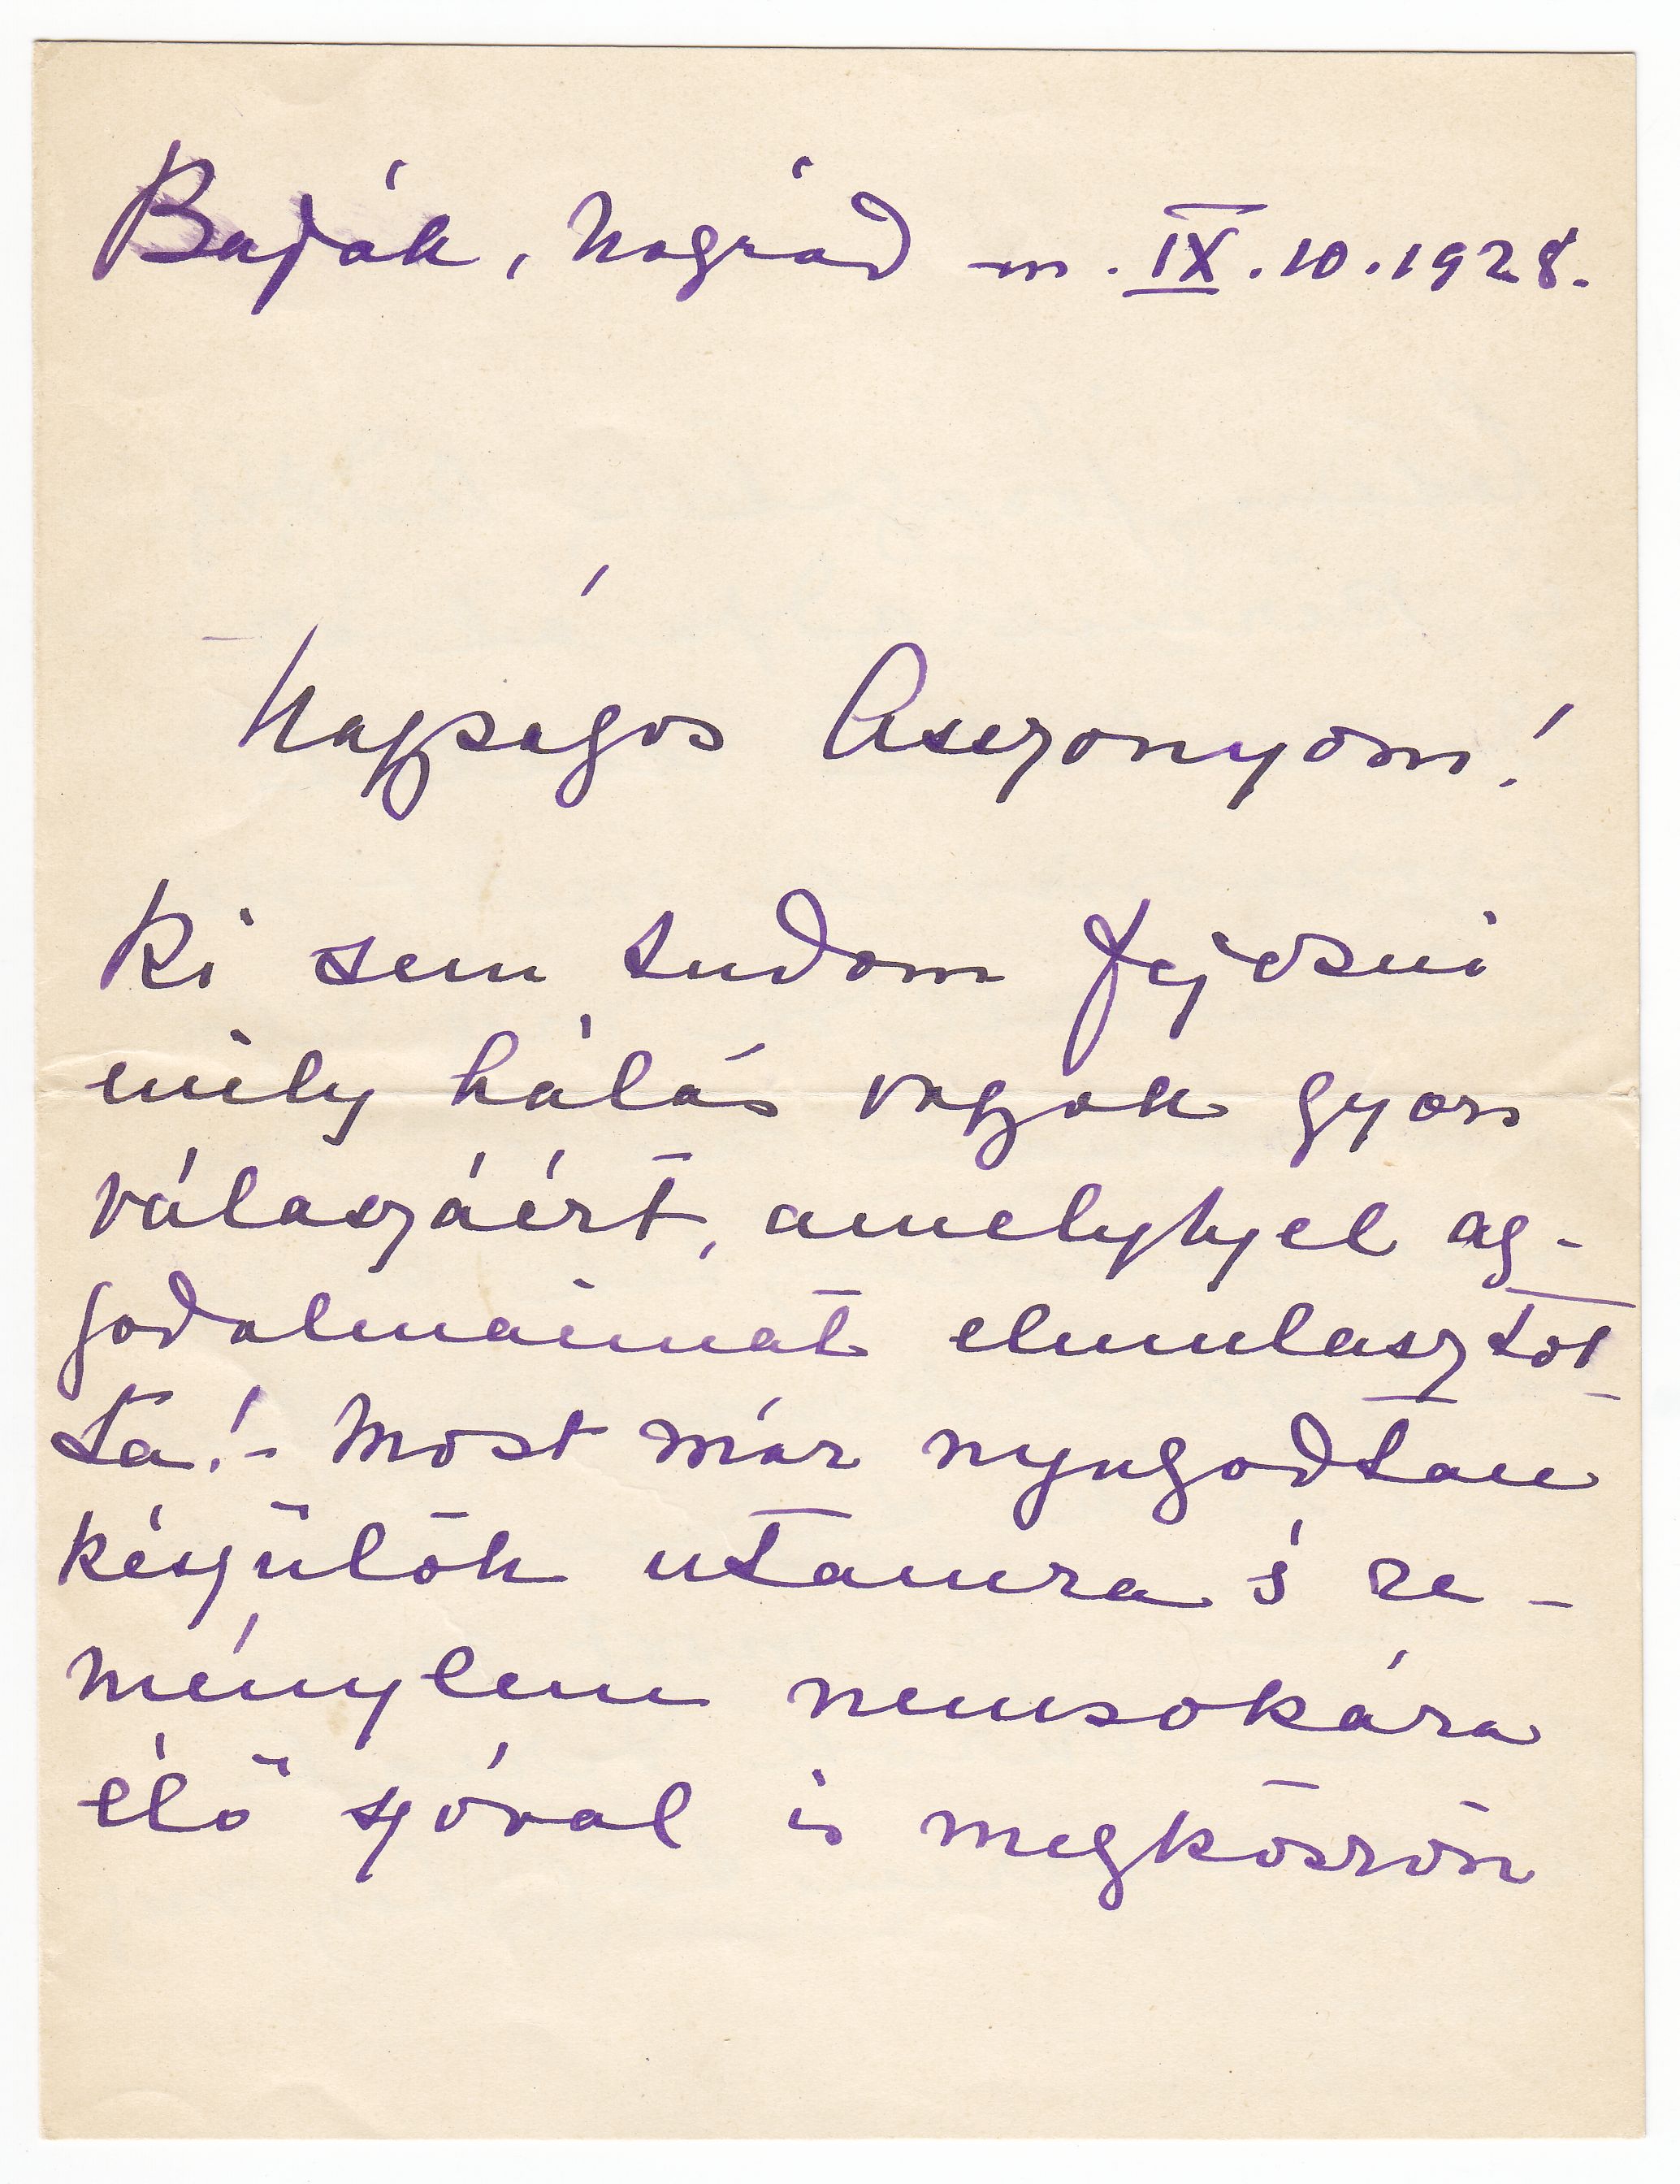 Baják, Nógrád m. IX. 10. 1928.
Nagyságos Asszonyom!
Ki sem tudom fejezni
mily hálás vagyok gyors
válaszáért, amelylyel ag-
godalmaimat elmulasztot-
ta!- Most már nyugodtan
készülök utamra s re-
ménylem nemsokára
élő szóval is megköszön